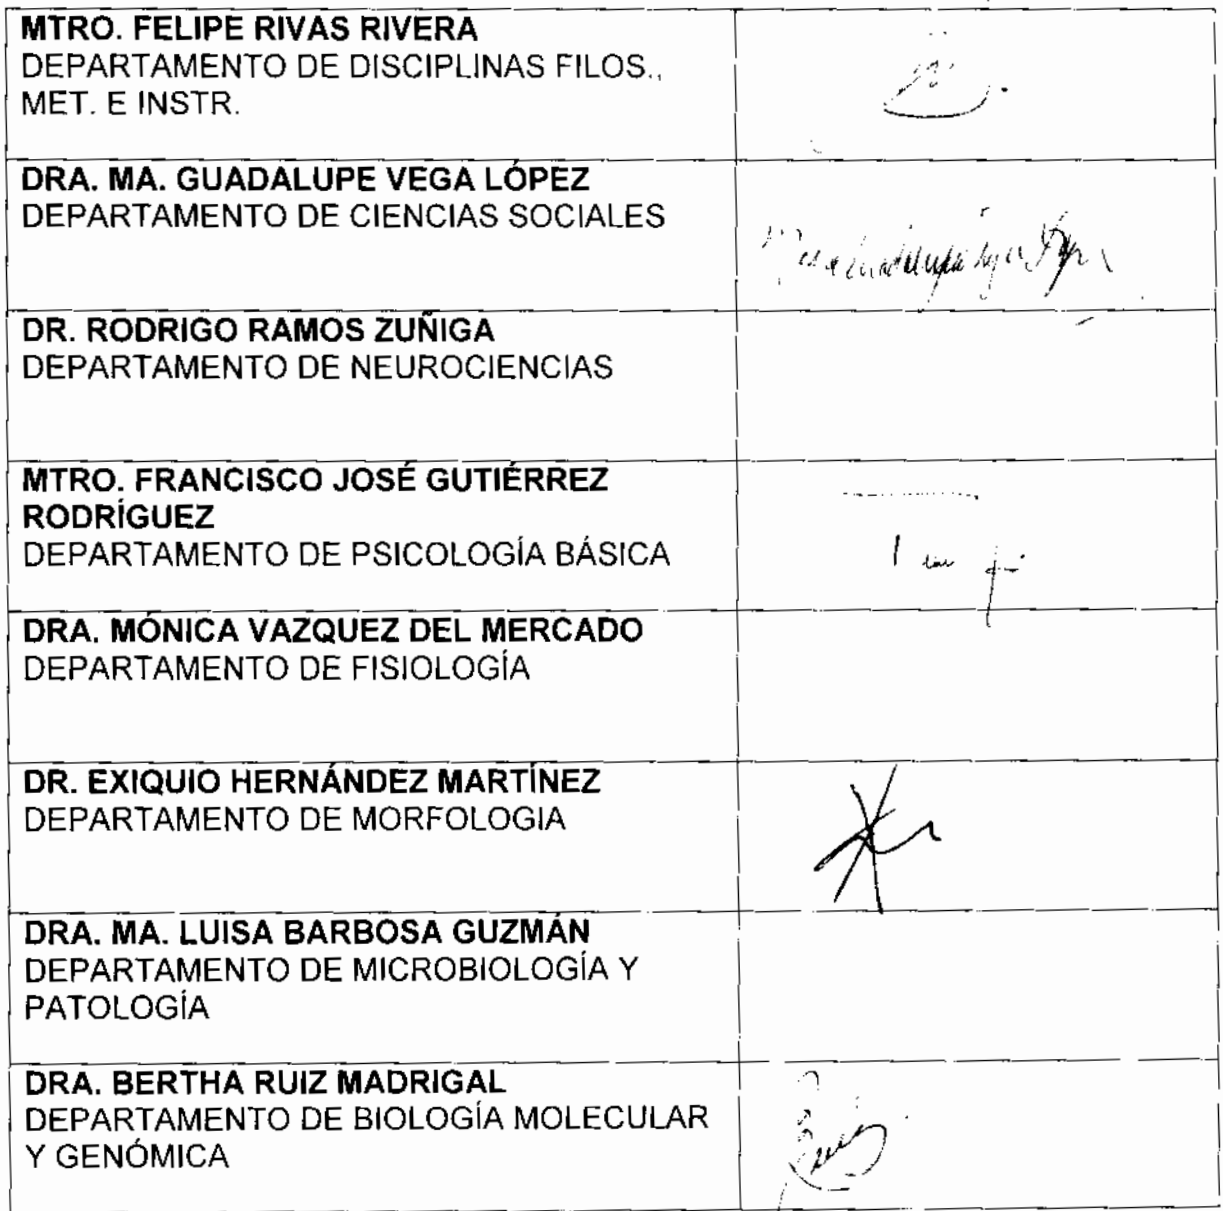 MTRO. FELIPE RIVAS RIVERA
DEPARTAMENTO DE DISCIPLINAS FILOS.,
MET. E INSTR.
DRA. MA. GUADALUPE VEGA LÓPEZ
DEPARTAMENTO DE CIENCIAS SOCIALES
DR. RODRIGO RAMOS ZUÑIGA
DEPARTAMENTO DE NEUROCIENCIAS
MTRO. FRANCISCO JOSÉ GUTIÉRREZ
RODRÍGUEZ
DEPARTAMENTO DE PSICOLOGÍA BÁSICA
DRA. MÓNICA VAZQUEZ DEL MERCADO
DEPARTAMENTO DE FISIOLOGÍA
DR. EXIQUIO HERNÁNDEZ MARTÍNEZ
DEPARTAMENTO DE MORFOLOGIA
DRA. MA. LUISA BARBOSA GUZMÁN
DEPARTAMENTO DE MICROBIOLOGÍA Y
PATOLOGÍA
DRA. BERTHA RUIZ MADRIGAL
DEPARTAMENTO DE BIOLOGÍA MOLECULAR
Y GENÓMICA